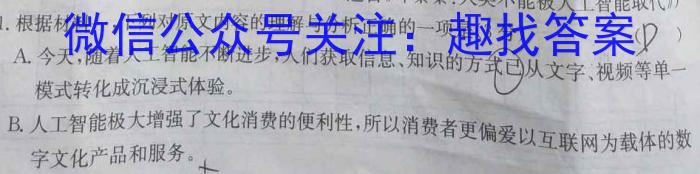 人类不能被人工智能取代》
1. 根据材料 下列对原文内容的理解与分析正确的一项是 (D)
微信公众号关注：趣找答案
A. 今天,随着人工智能不断进步,人们获取信息、知识的方式已从文字、视频等单一
模式转化成沉浸式体验。
B. 人工智能极大增强了文化消费的便利性,所以消费者更偏爱以互联网为载体的数
字文化产品和服务。